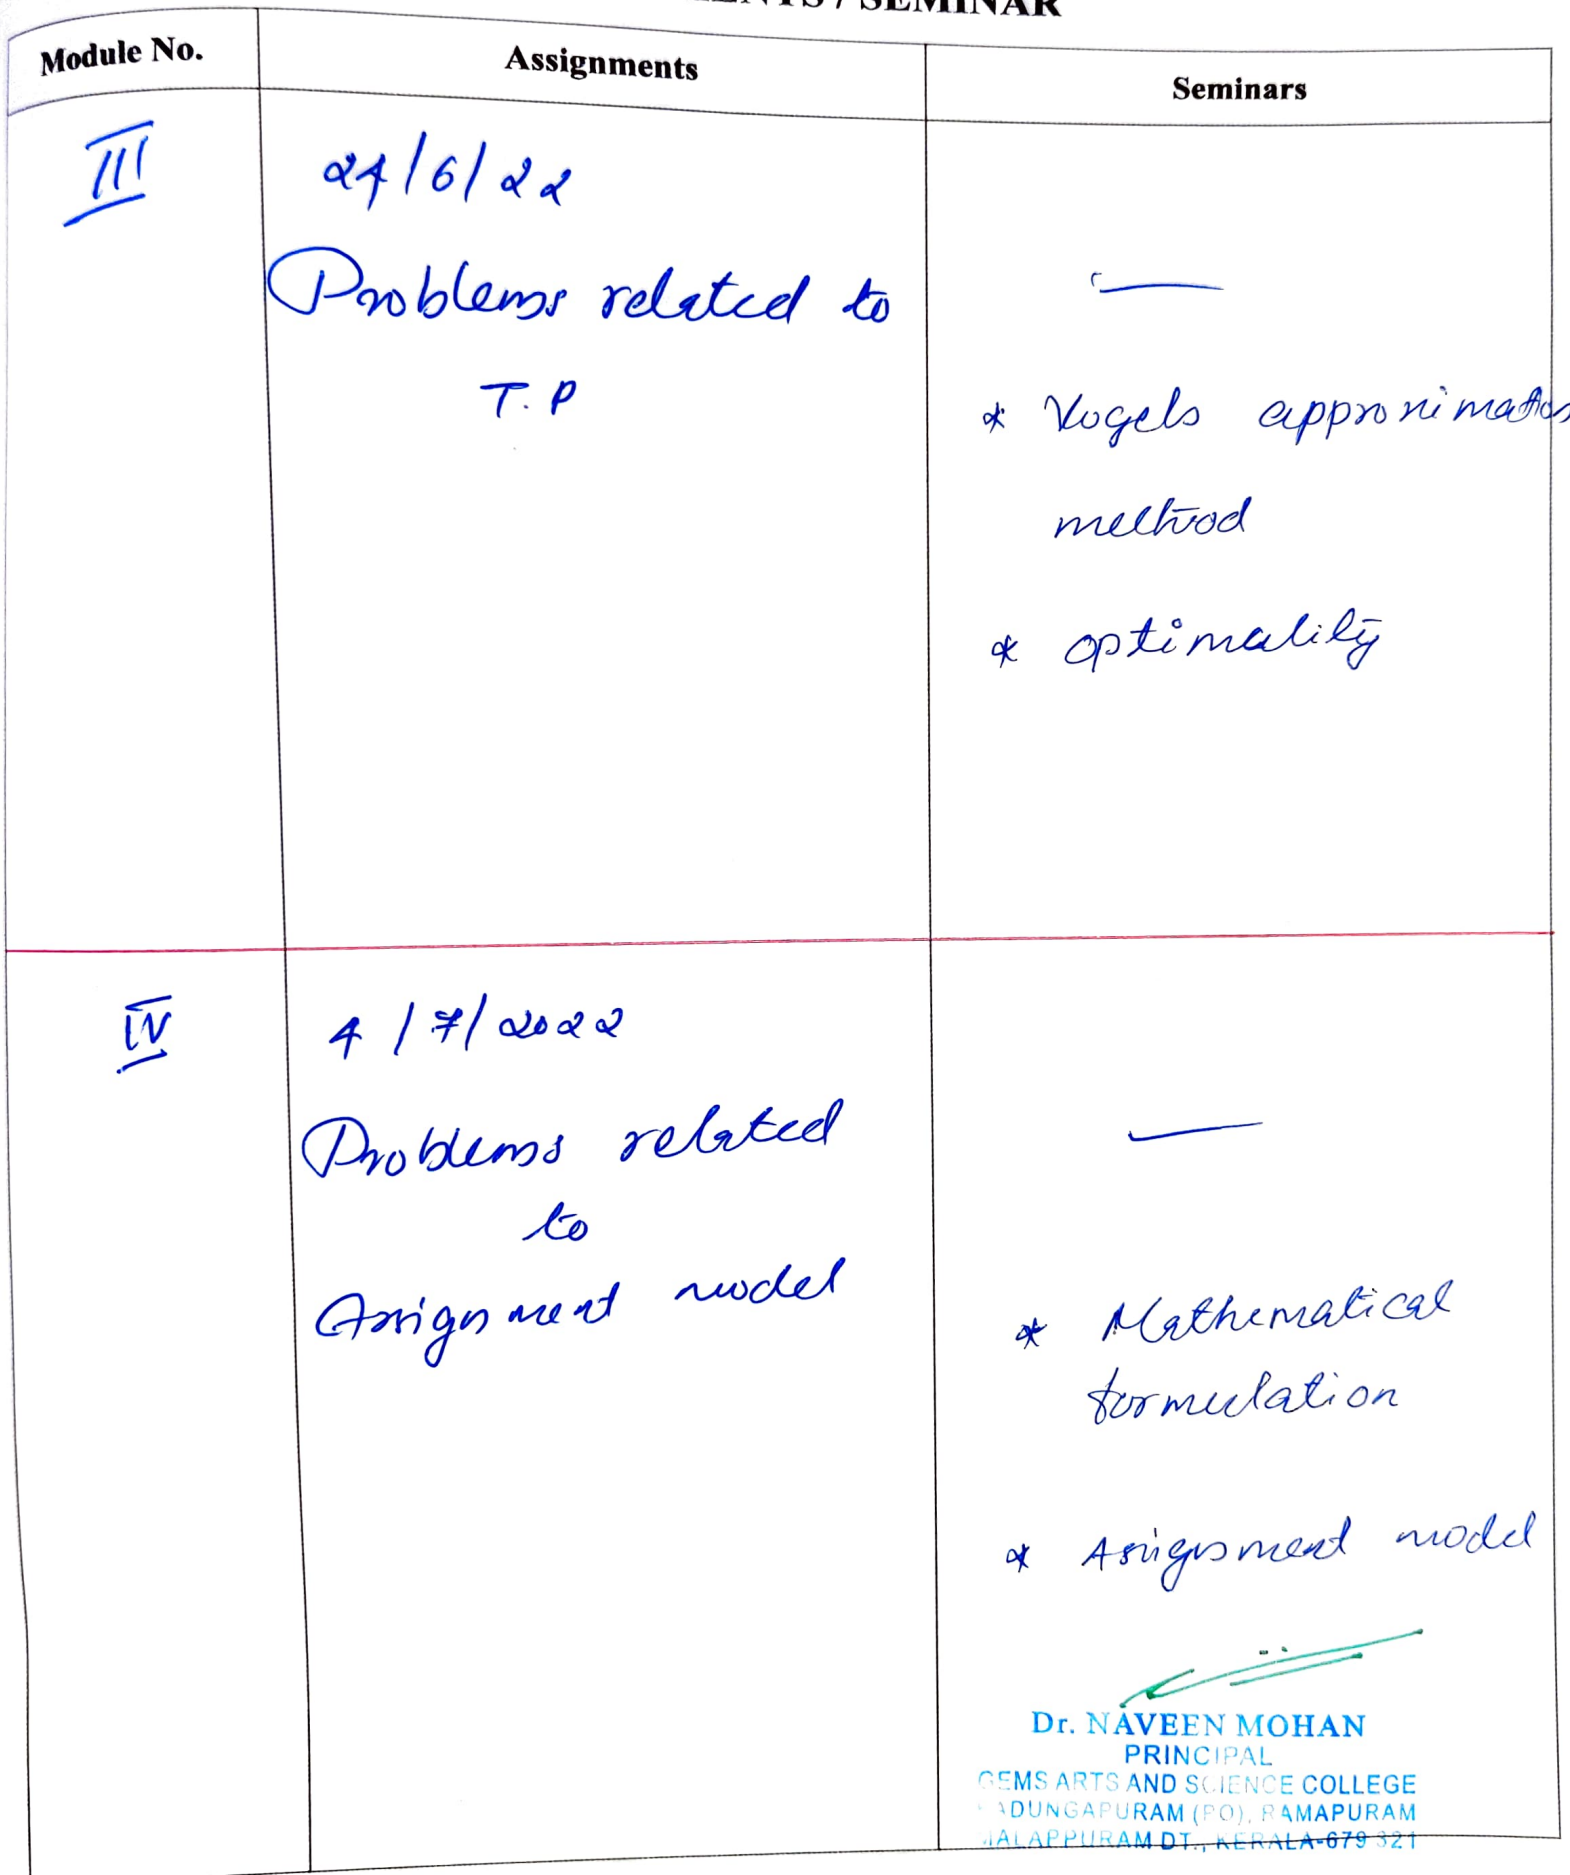 SEMINAR
Module No.
Assignments
Seminars
III
24/6/22
Problems related to
T.P
* Vogels approximation
method
* optimality
IV
4/7/2022
Problems related
to
Assignment model
* Mathematical
formulation
* Assignment model
Dr. NAVEEN MOHAN
PRINCIPAL
GEMS ARTS AND SCIENCE COLLEGE
ADUNGAPURAM (PO), RAMAPURAM
MALAPPURAM DT., KERALA-679 321